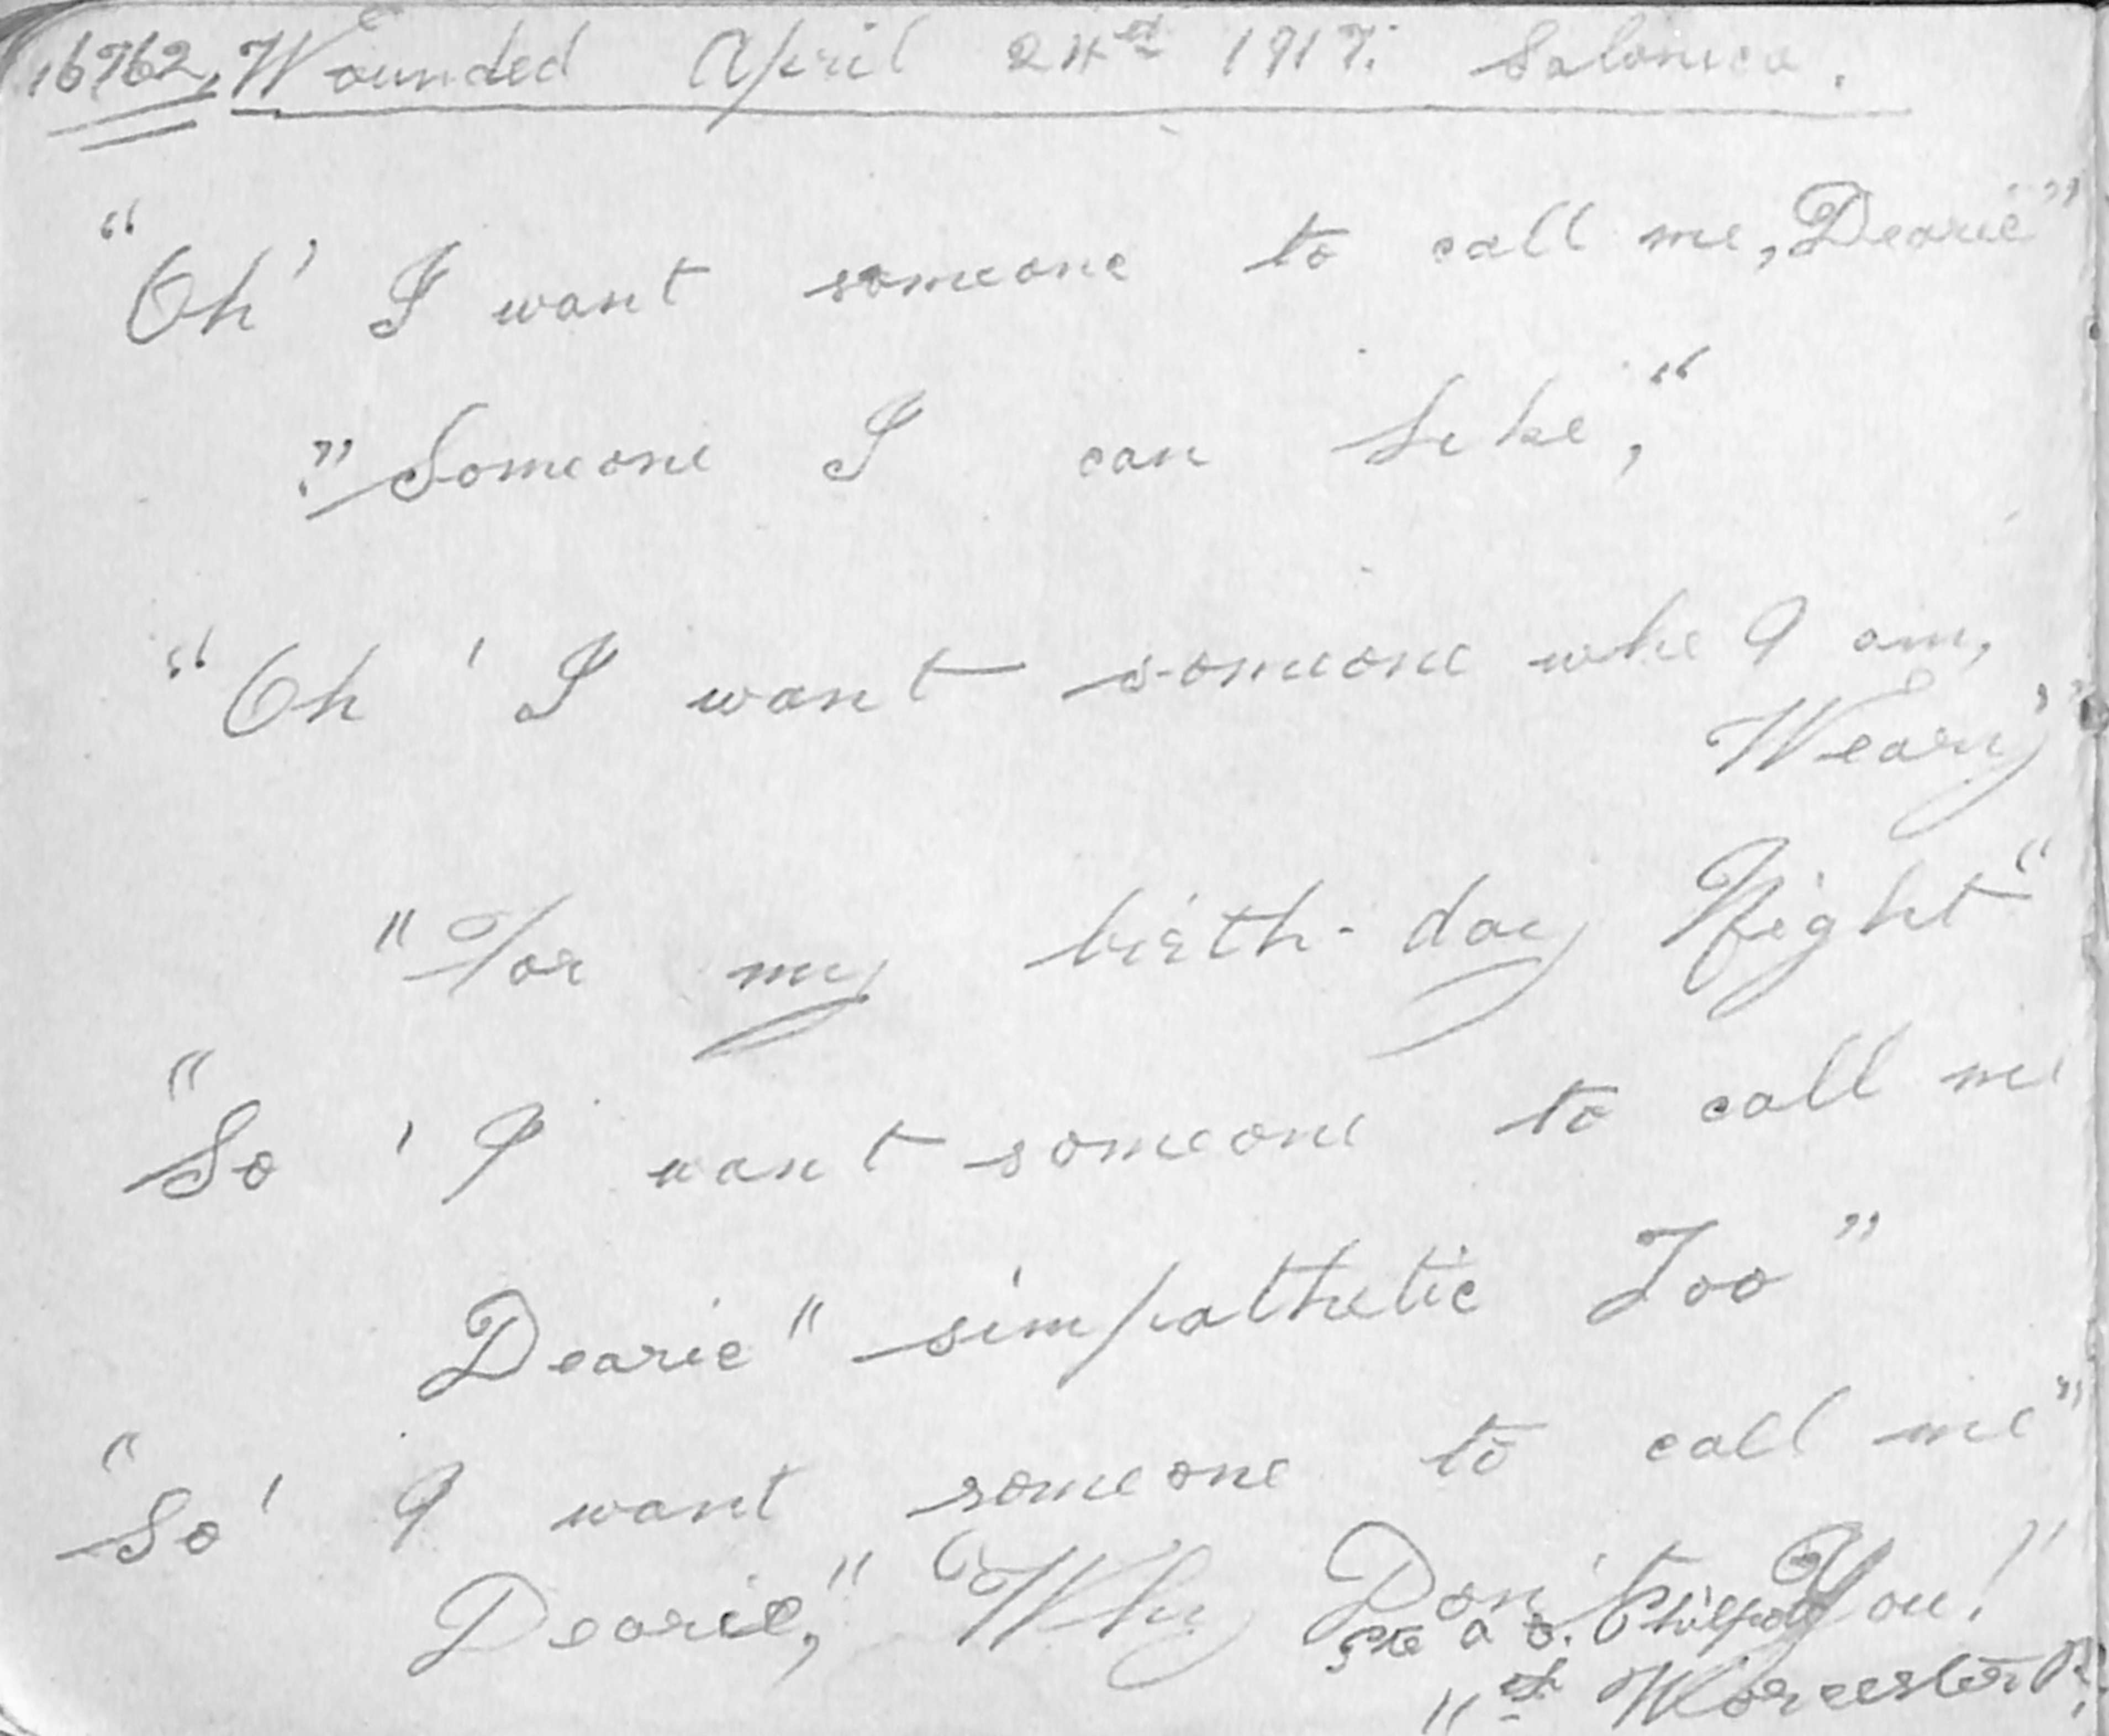 16762, Wounded April 24th 1917. Salonica.
"Oh' I want someone to call me, Dearie"
"Someone I can like,"
"Oh' I want someone whe I am,
Weary"
"For my birth-day Night"
"So' I want someone to call me
Dearie" simpathetic Too"
"So' I want someone to call me"
Dearie," "Why Don't You!"
Pte a Philpott
11th Worcester R.